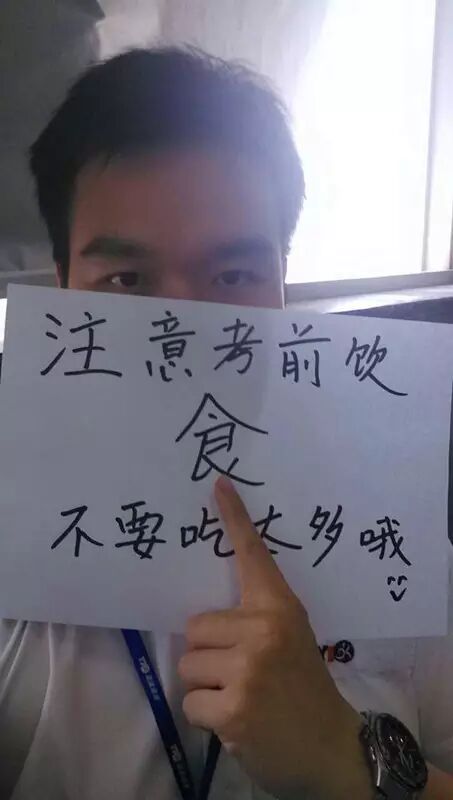 注意考前饮
食
不要吃太多哦